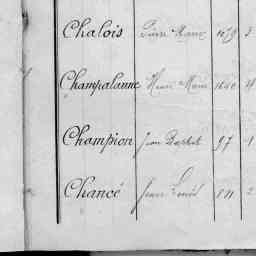 Chalois Pierre Marie 1079 3
Champalanne Henri Marie 1640 4
Champion Jean Baptist 97 1
Chancé Jean Louis 811 2